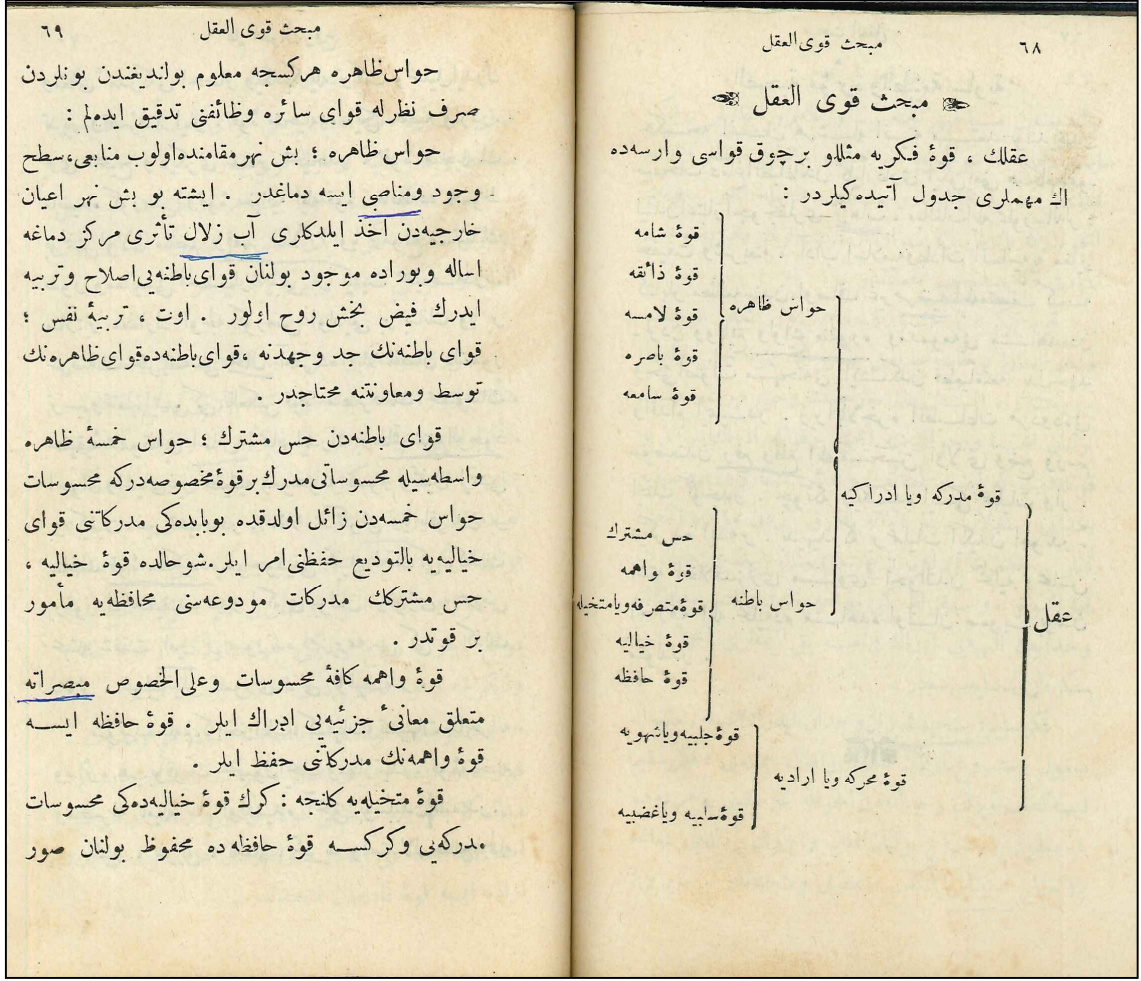 ٦٨
مبحث قوى العقل
مبحث قوى العقل
عقلك ، قوۀ فكريه مثللو برچوق قواسى وارسه ده
اڭ مهملرى جدول آتيده كيلردر :
قوۀ شامه
قوۀ ذائقه
حواس ظاهره
قوۀ لامسه
قوۀ باصره
قوۀ سامعه
قوۀ مدركه ويا ادراكيه
حس مشترك
قوۀ واهمه
حواس باطنه
قوۀ متصرفه ويا متخيله
عقل
قوۀ خياليه
قوۀ حافظه
قوۀ جلبيه وياشهويه
قوۀ محركه ويا اراديه
قوۀ سلبيه وياغضبيه
مبحث قوى العقل
٦٩
حواس ظاهره هركسجه معلوم بولنديغندن بونلردن
صرف نظرله قواى سائره وظائفنى تدقيق ايده لم :
حواس ظاهره ؛ بش نهر مقامنده اولوب منابعى، سطح
وجود ومناصبى ايسه دماغدر . ايشته بو بش نهر اعيان
خارجيه دن اخذ ايلدكلرى آب زلال تأثرى مركز دماغه
اساله وبوراده موجود بولنان قواى باطنه يى اصلاح وتربيه
ايدرك فيض بخش روح اولور . اوت ، تربيۀ نفس ؛
قواى باطنه نك جد وجهدنه ، قواى باطنه ده قواى ظاهره نك
توسط ومعاونتنه محتاجدر .
قواى باطنه دن حس مشترك ؛ حواس خمسۀ ظاهره
واسطه سيله محسوساتى مدرك بر قوۀ مخصوصه دركه محسوسات
حواس خمسه دن زائل اولدقده بوبابده كى مدركاتنى قواى
خياليه يه بالتوديع حفظنى امر ايلر . شو حالده قوۀ خياليه ،
حس مشتركك مدركات مودوعه سنى محافظه يه مأمور
بر قوتدر .
قوۀ واهمه كافۀ محسوسات وعلى الخصوص مبصراته
متعلق معانئ جزئيه يى ادراك ايلر . قوۀ حافظه ايســه
قوۀ واهمه نك مدركاتنى حفظ ايلر .
قوۀ متخيله يه كلنجه : كرك قوۀ خياليه ده كى محسوسات
مدركه يى وكركســه قوۀ حافظه ده محفوظ بولنان صور